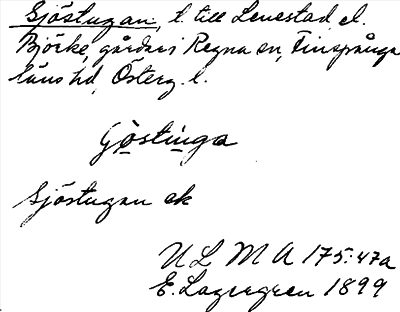 Sjöstugan, l. till Lenestad el.
Björke, gårdar i Regna sn, Finspånga
läns hd, Österg. l.
Göstinga
Sjöstugan ek
ULMA 175:47a
E. Lagergren 1899